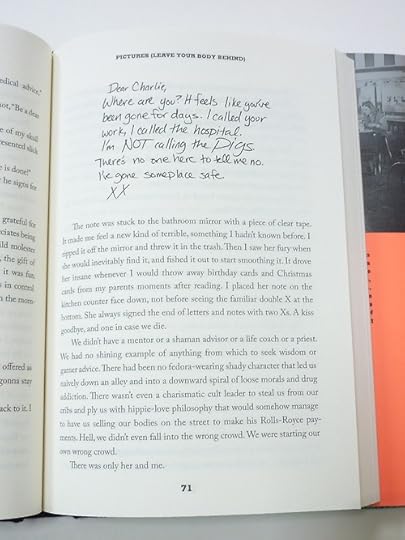 edical advice,"
not, "Be a dear
e of my skull
presented slick
is done!"
he signs for
grateful for
ciates being
ild molester
the gift of
it was fun.
s in control
n the mom-
offered as
gonna stay
ack to it. I
PICTURES (LEAVE YOUR BODY BEHIND)
Dear Charlie,
Where are you? It feels like you've
been gone for days. I called your
work, I called the hospital.
I'm NOT calling the Pigs.
There's no one here to tell me no.
I've gone someplace safe.
XX
The note was stuck to the bathroom mirror with a piece of clear tape.
It made me feel a new kind of terrible, something I hadn't known before. I
ripped it off the mirror and threw it in the trash. Then I saw her fury when
she would inevitably find it, and fished it out to start smoothing it. It drove
her insane whenever I would throw away birthday cards and Christmas
cards from my parents moments after reading. I placed her note on the
kitchen counter face down, not before seeing the familiar double X at the
bottom. She always signed the end of letters and notes with two Xs. A kiss
goodbye, and one in case we die.
We didn't have a mentor or a shaman advisor or a life coach or a priest.
We had no shining example of anything from which to seek wisdom or
garner advice. There had been no fedora-wearing shady character that led us
naively down an alley and into a downward spiral of loose morals and drug
addiction. There wasn't even a charismatic cult leader to steal us from our
cribs and ply us with hippie-love philosophy that would somehow manage
to have us selling our bodies on the street to make his Rolls-Royce pay-
ments. Hell, we didn't even fall into the wrong crowd. We were starting our
own wrong crowd.
There was only her and me.
71